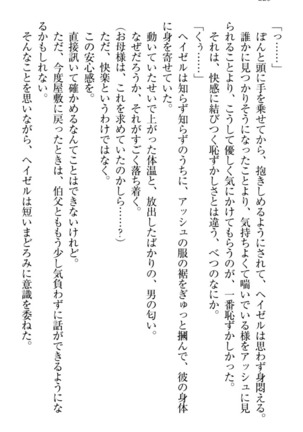 「っ……」
ぽんと頭に手を乗せてから、抱きしめるようにされて、ヘイゼルは思わず身悶える。
誰かに見つかりそうになったことより、気持ちよくて喘いでいる様をアッシュに見
られることより、こうして優しく気にかけてもらうのが、一番恥ずかしかった。
それは、快感に結びつく恥ずかしさとは違う、べつのなにか。
「くぅ……」
ヘイゼルは知らず知らずのうちに、アッシュの服の裾をぎゅっと摑んで、彼の身体
に身を寄せていた。
動いていたせいで上がった体温と、放出したばかりの、男の匂い。
なぜだろうか、それがすごく落ち着く。
（お母様は、これを求めていたのかしら……？）
ただ、快楽というわけではなく。
この安心感を。
直接訊いて確かめるなんてことはできないけれど。
ただ、今度屋敷に戻ったときは、伯父とももう少し気負わずに話ができるようにな
るかもしれない。
そんなことを思いながら、ヘイゼルは短いまどろみに意識を委ねた。